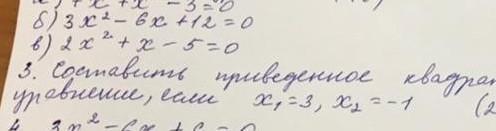 x + x - 3 = 0
б) 3x² - 6x + 12 = 0
в) 2x² + x - 5 = 0
3. Составить приведенное квадрат
уравнение, если x₁ = 3, x₂ = -1 (2
4. 3x² - 6x + c = 0